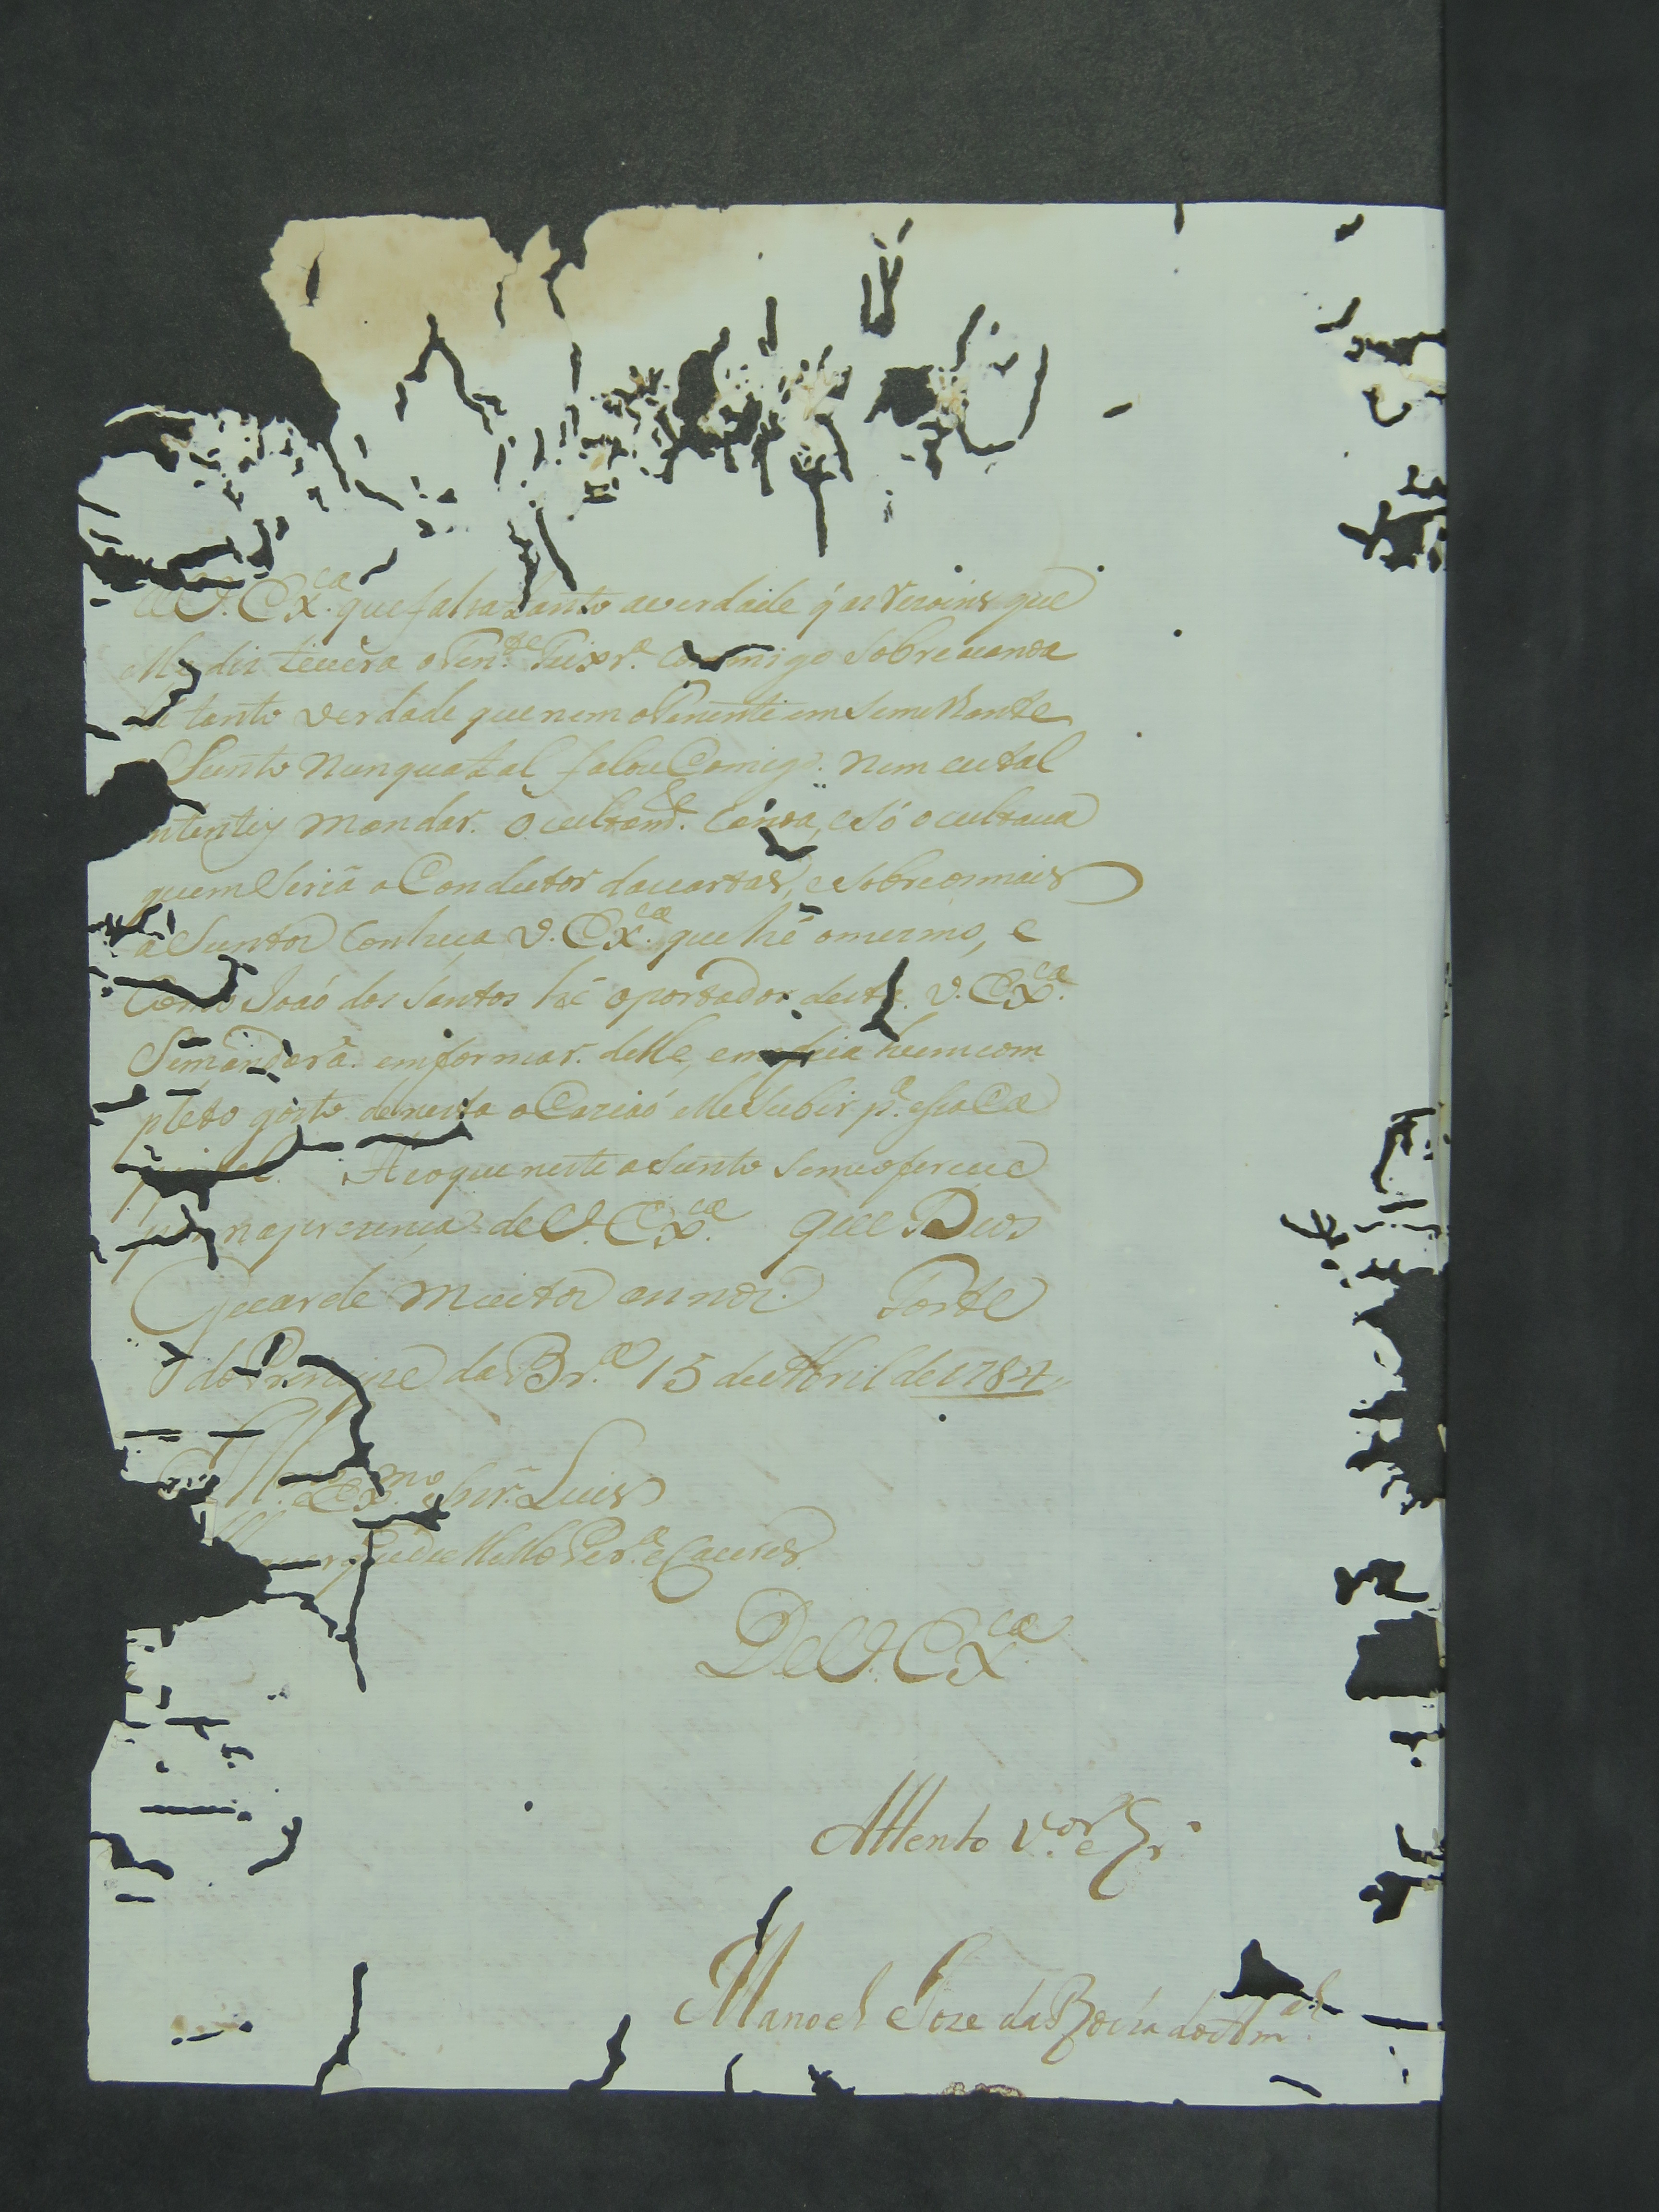 V. Exca. que falsa tanto averdade q̃ as Rezoins que
elle diz tivera o Tene. Teixra. Commigo Sobre acanoa
hé tanto verdade que nem oTenente em Semilhante
aSunto Nunqua tal falou Comigo. Nem eu tal
intentey mandar. Ocultamte. Canoa, e Só ocultava
quem Seriã o Condutor dascartas, e Sobre os mais
aSuntos Conheça V. Exca. que hé o mesmo, e
Como Joaõ dos Santos hé oportador deste V. Exca.
Semandarã emformar. delle, e hum com
pleto gosto de nesta oCaziaõ elle Subir pa. essa Ca
pital. He oque neste aSunto Semeoferece
por naprezença de V. Exca. que Deos
Guarde Muitos annos. Forte
do Principe da Bra. 15 de Abril de 1784
Illmo. e Exmo. Snr. Luis
Albuquerque de Mello Pera. e Caceres
De V. Exca.
Attento Vor. e Cr.
Manoel Joze da Rocha do Aml.